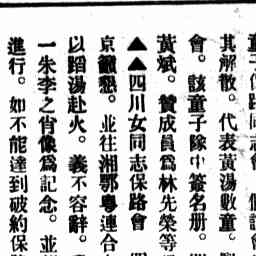 童子保路同志會
其解散。代表黃湯數童。
會。該童子隊中簽名册。
黃斌。贊成員爲林先榮等
▲▲四川女同志保路會
京籲懇。並往湘鄂粵連合
以蹈湯赴火。義不容辭。
一朱李之肖像爲記念。並
進行。如不能達到破約保